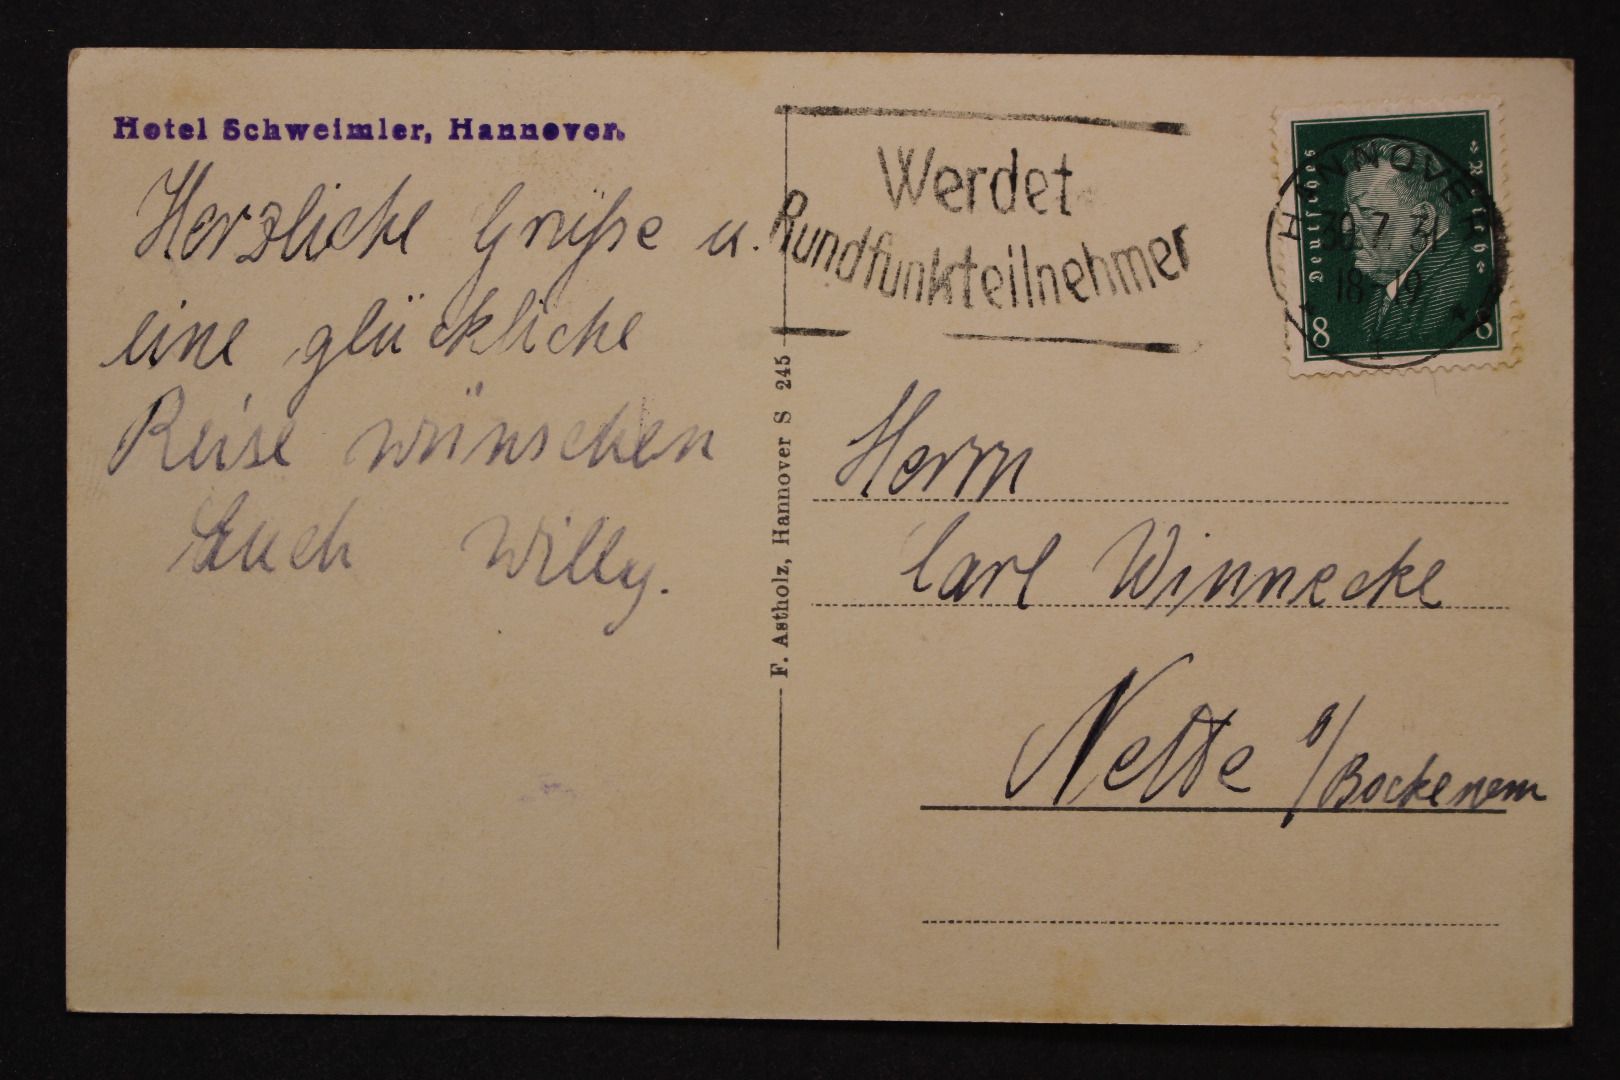 Hotel Schweimler, Hannover.
Herzliche Grüße u.
eine glückliche
Reise wünschen
Euch Willy.
F. Astholz, Hannover S 245
Werdet
Rundfunkteilnehmer
Deutsches Reich
HANNOVER
30.7.31
18-19
1
8 8
Herrn
Carl Winnecke
Nette b/Bockenem